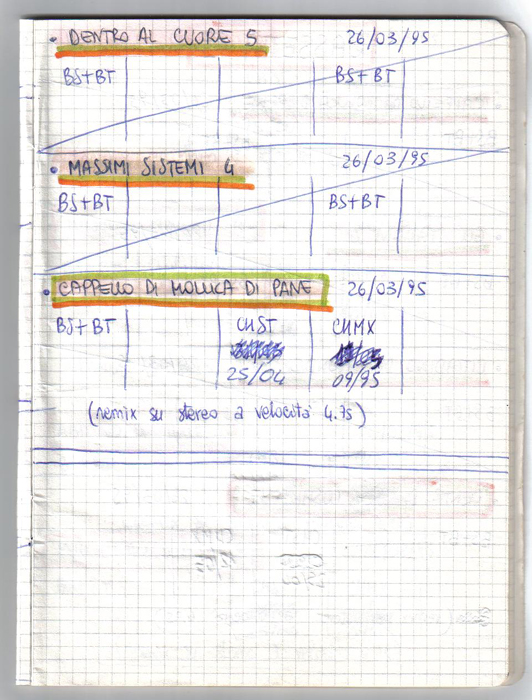 • DENTRO AL CUORE 5 26/03/95
BS+BT BS+BT
• MASSIMI SISTEMI 4 26/03/95
BS+BT BS+BT
• CAPPELLO DI MOLLICA DI PANE 26/03/95
BS+BT CHST CHMX
25/04 09/95
(remix su stereo a velocità 4.75)